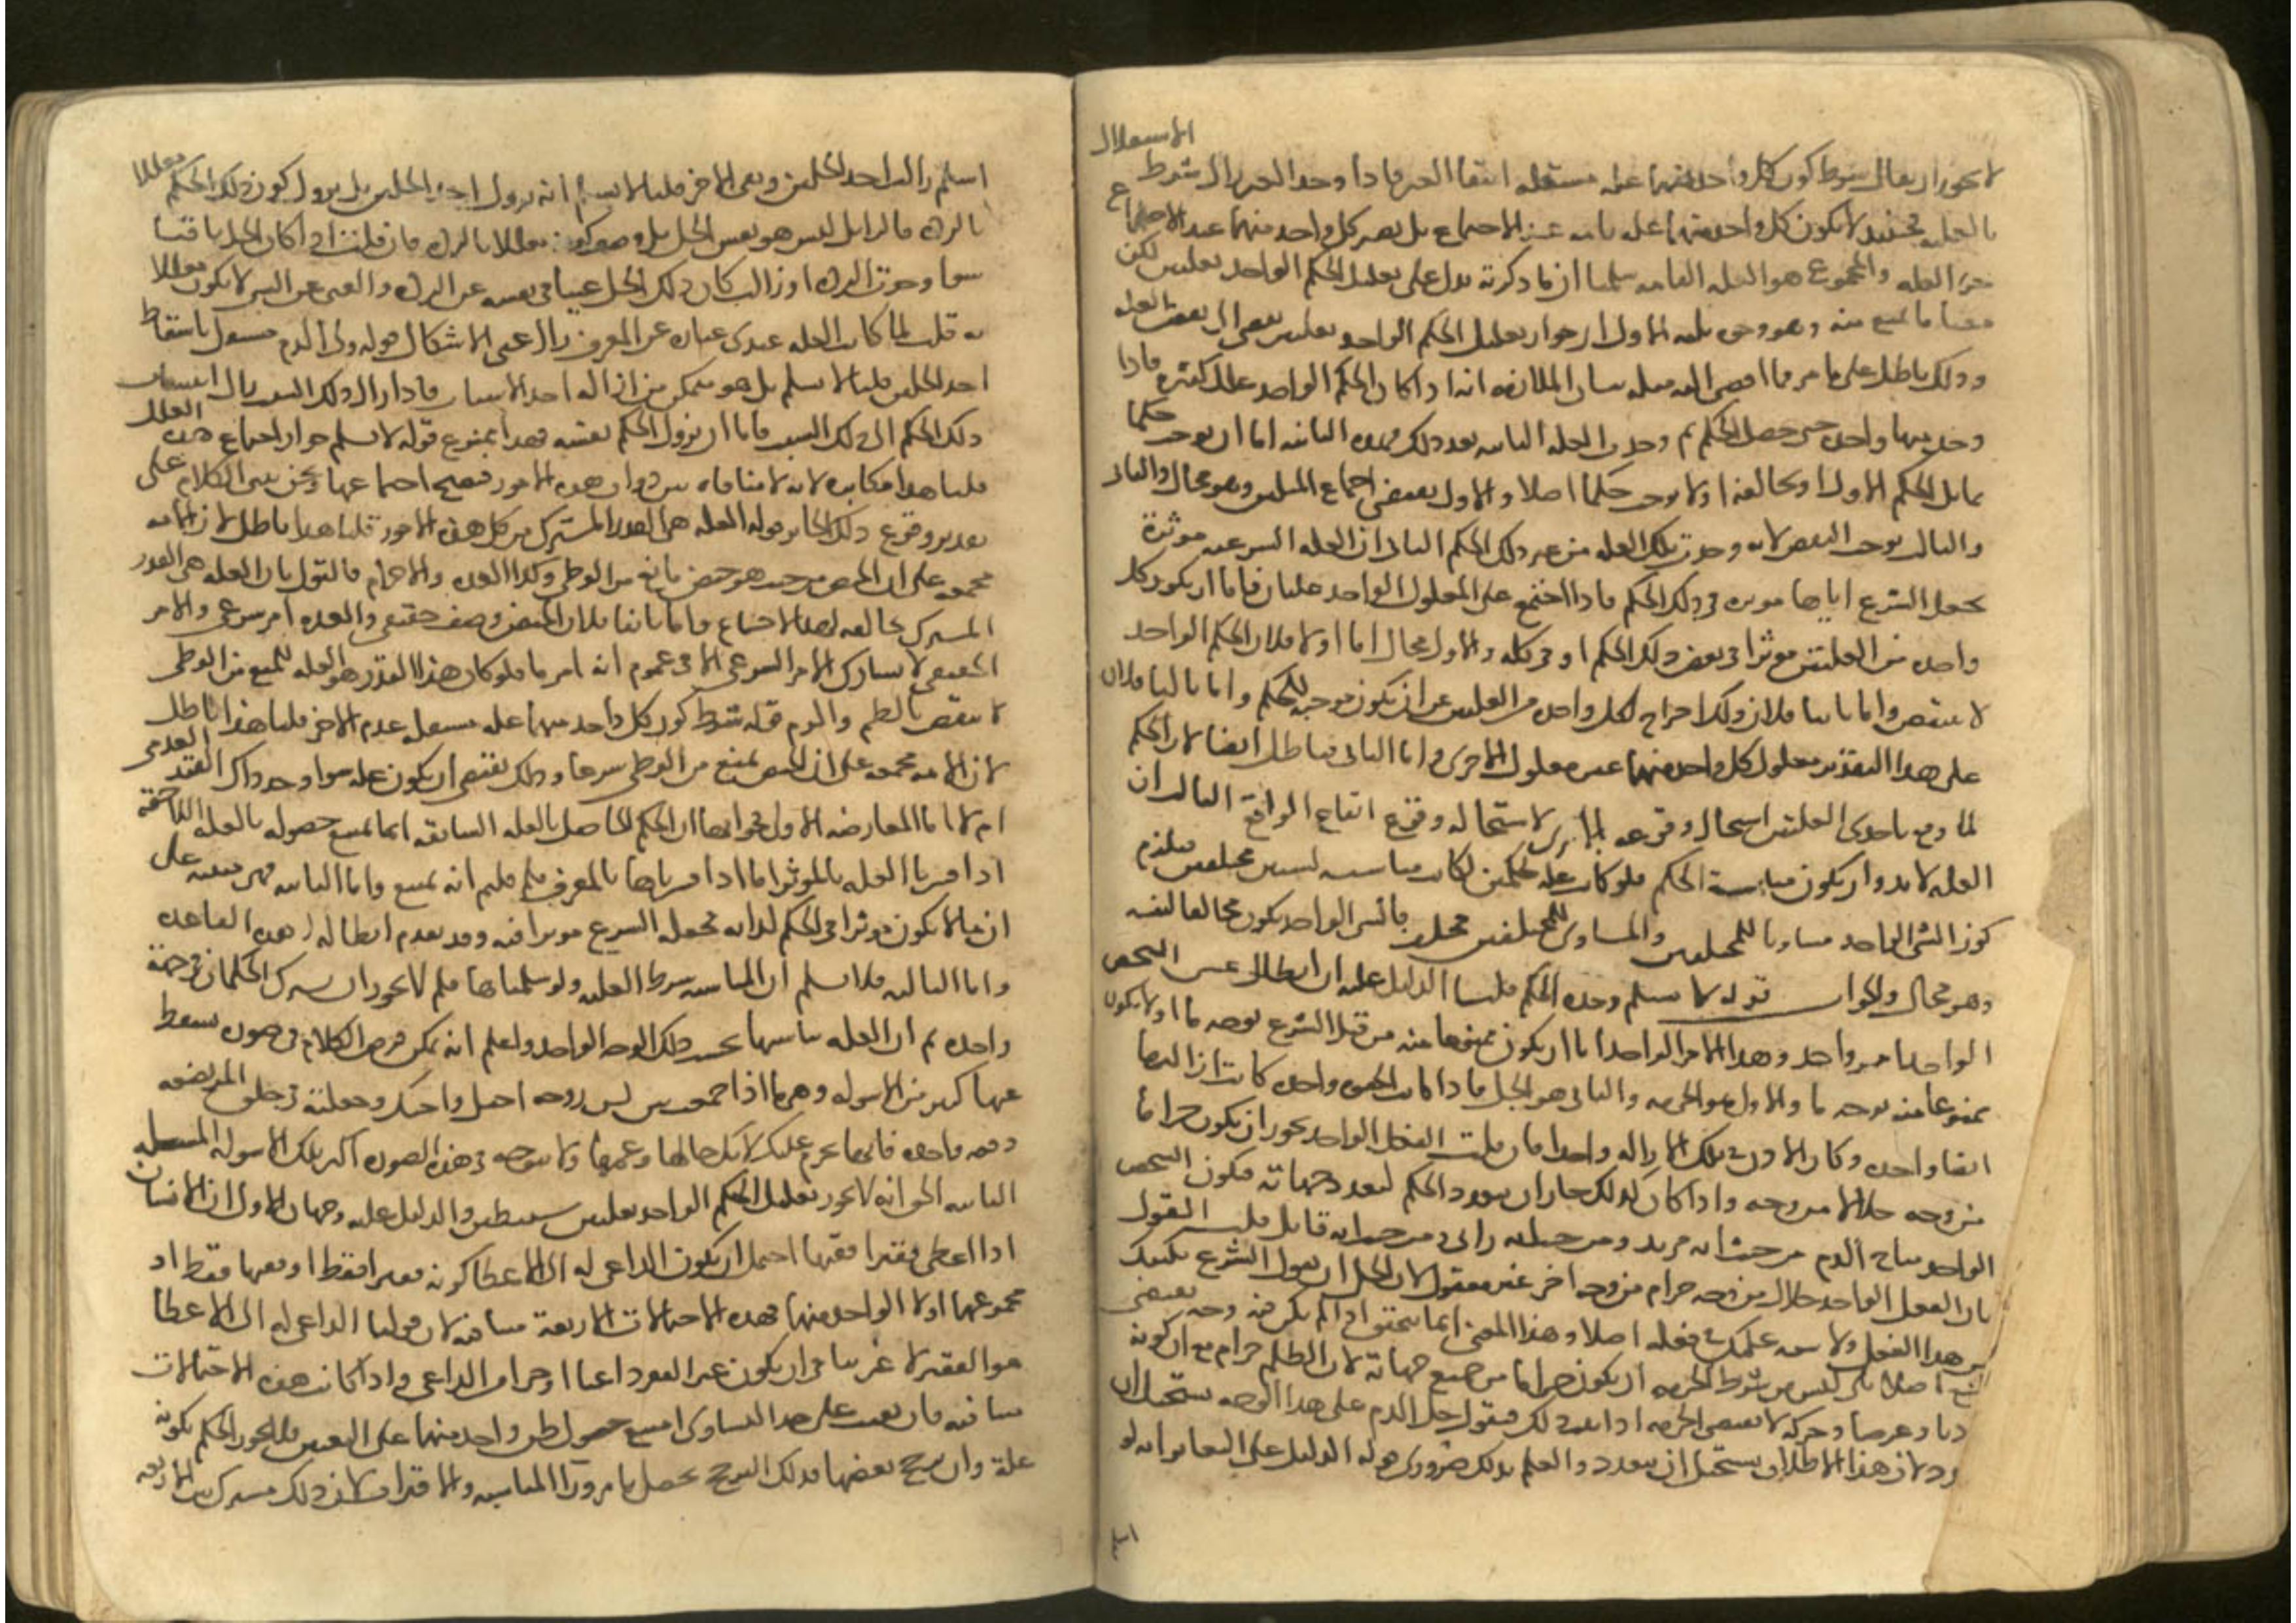 الاستقلال
لا يجوز ان يقال شرط كون كل واحد منهما علة مستقلة انتفا الغير فاذا وجد الغير زال شرط
بالعلية فحينئذ لا يكون كل واحد منهما علة تامة عند الاجتماع بل يصير كل واحد منهما عند الاجتماع
جزء العلة والمجموع هو العلة التامة سلمنا ان ما ذكرته يدل على تعليل الحكم الواحد بعلتين لكن
معنا ما يمنع منه وهو وجوه ثلثة الاول ان جواز تعليل الحكم الواحد بعلتين يفضي الى نقض العلة
وذلك باطل على ما مر فما افضى اليه مثله بيان الملازمة انه اذا كان للحكم الواحد علل كثيرة فاذا
وجد منها واحدة حتى حصل الحكم ثم وجدت العلة الثانية بعد ذلك فهذه الثانية اما ان توجب حكما
يماثل الحكم الاول او يخالفه او لا توجب حكما اصلا والاول يقتضي اجتماع المثلين وهو محال والثاني
والثالث يوجب النقض لانه وجدت تلك العلة من غير ذلك الحكم الثاني ان العلة الشرعية موثرة
بجعل الشرع اياها موثرة في ذلك الحكم فاذا اجتمع على المعلول الواحد علتان فاما ان يكون كل
واحدة من العلتين موثرا في بعض ذلك الحكم او في كله والاول محال اما اولا فلان الحكم الواحد
لا يتبعض واما ثانيا فلان ذلك اخراج لكل واحدة من العلتين عن ان يكون موجبة للحكم واما ثالثا فلان
على هذا التقدير معلول كل واحد منهما غير معلول الاخرى واما الثاني فباطل ايضا لان الحكم
لما وقع باحدى العلتين استحال وقوعه بالاخرى لاستحالة وقوع ايقاع الواقع الثالث ان
العلة لا بد وان يكون مناسبة للحكم فلو كانت علة لحكمين لكانت مناسبة لشيئين مختلفين فيلزم
كون الشي الواحد مساويا للمختلفين والمساوي للمختلفين مختلف فالشي الواحد يكون مخالفا لنفسه
وهو محال والجواب قوله لا نسلم وحدة الحكم قلنا الدليل عليه ان ابطال حياة الشخص
الواحد امر واحد وهذا الامر الواحد اما ان يكون ممنوعا منه من قبل الشرع بوجه ما او لا يكون
ممنوعا منه بوجه ما والاول هو الحرمة والثاني هو الحل فاذا كانت الحيوة واحدة كانت ازالتها
ايضا واحدة وكان الاذن في تلك الازالة واحدا فان قلت الفعل الواحد يجوز ان يكون حراما
من وجه حلالا من وجه واذا كان كذلك جاز ان يتعدد الحكم لتعدد جهاته فيكون الشخص
الواحد مباح الدم من حيث انه مرتد ومن حيث انه زاني ومن حيث انه قاتل قلت القول
بان الفعل الواحد حلال من وجه حرام من وجه اخر غير معقول لان الحل ان يقول الشرع مكنتك
من هذا الفعل ولا تبعة عليك في فعله اصلا وهذا المعنى انما يتحقق اذا لم يكن فيه وجه يقتضي
المنع اصلا بلى ليس من شرط الحرمة ان يكون حراما من جميع جهاته لان الظلم حرام مع ان كونه
حادثا وعرضا وحركة لا يقتضي الحرمة اذا ثبت ذلك فنقول حل الدم على هذا الوجه يستحيل ان
يتعدد لان هذا الاطلاق يستحيل ان يتعدد والعلم بذلك ضروري قوله الدليل على التغاير انه لو
اسلم
اسلم زالت احد الحلين وبقي الاخر قلنا لا نسلم انه يزول احد الحلين بل يزول كون ذلك الحكم معللا
بالردة فالزايل ليس هو نفس الحل بل وصف كونه معللا بالردة فان قلت اذا كان الحل باقيا
سوا وجدت الردة او زالت كان ذلك الحل غنيا في نفسه عن الردة والغني عن الشي لا يكون معللا
به قلت لما كانت العلة عندي عبارة عن المعرف زال عني الاشكال قوله ولي الدم مستقل باسقاط
احد الحلين قلنا لا نسلم بل هو متمكن من ازالة احد الاسباب فاذا زال ذلك السبب زال انتساب
ذلك الحكم الى ذلك السبب فاما ان يزول الحكم نفسه فهذا ممنوع قوله لا نسلم جواز اجتماع هذه العلل
قلنا هذا مكابرة لانه لا منافاة بين ذوات هذه الامور فيصح اجتماعها ونحن نبني الكلام على
تقدير وقوع ذلك الجايز قوله العلة هي القدر المشترك بين كل هذه الامور قلنا هذا باطل لان الامة
مجمعة على ان الحيض من حيث هو حيض مانع من الوطي وكذا العدة والاحرام فالقول بان العلة هي القدر
المشترك مخالفة لهذا الاجماع واما ثانيا فلان الحيض وصف حقيقي والعدة امر شرعي والامر
الحقيقي لا يشارك الامر الشرعي الا في عموم انه امر ما فلو كان هذا القدر هو العلة للمنع من الوطي
لانتقض بالطم والرم قوله شرط كون كل واحد منهما علة مستقلة عدم الاخر قلنا هذا باطل
لان الامة مجمعة على ان الحيض يمنع من الوطي شرعا وذلك يقتضي ان يكون علة سوا وجد ذاك القيد العدمي
ام لا اما المعارضة الاولى فجوابها ان الحكم الحاصل بالعلة السابقة انما يمنع حصوله بالعلة اللاحقة
اذا فسرنا العلة بالموثر اما اذا فسرناها بالمعرف فلم قلتم انه يمنع واما الثانية فهي مبنية على
ان ما لا يكون موثرا في الحكم لذاته يجعله الشرع موثرا فيه وقد تقدم ابطاله لهذه القاعدة
واما الثالثة فلا نسلم ان المناسبة شرط العلية ولو سلمناها فلم لا يجوز ان يشترك الحكمان في جهة
واحدة ثم ان العلة تناسبهما بحسب ذلك الوجه الواحد واعلم انه يمكن فرض الكلام في صورة يسقط
عنها كثير من الاسولة وهي ما اذا جمعت بين لبن زوجة اخيك واختك وجعلته في حلق المرتضعة
دفعة واحدة فانها تحرم عليك لانك خالها وعمها ولا يتوجه في هذه الصورة اكثر تلك الاسولة المسئلة
الثانية الحق انه لا يجوز تعليل الحكم الواحد بعلتين مستنبطتين والدليل عليه وجهان الاول ان الانسان
اذا اعطى فقيرا فقيها احتمل ان يكون الداعي له الى الاعطا كونه فقيرا فقط او فقيها فقط او
مجموعهما او لا لواحد منهما فهذه الاحتمالات الاربعة متنافية لان قولنا الداعي له الى الاعطا
هو الفقر لا غير ينافي ان يكون غير الفقر داعيا او جزءا من الداعي واذا كانت هذه الاحتمالات
متنافية فان بقيت على حد التساوي امتنع حصول ظن واحد منهما على التعيين فلا يجوز الحكم بكونه
علة وان ترجح بعضها فذلك الترجيح يحصل بامر ورا المناسبة والاقتران لان ذلك مشترك بين الاربعة